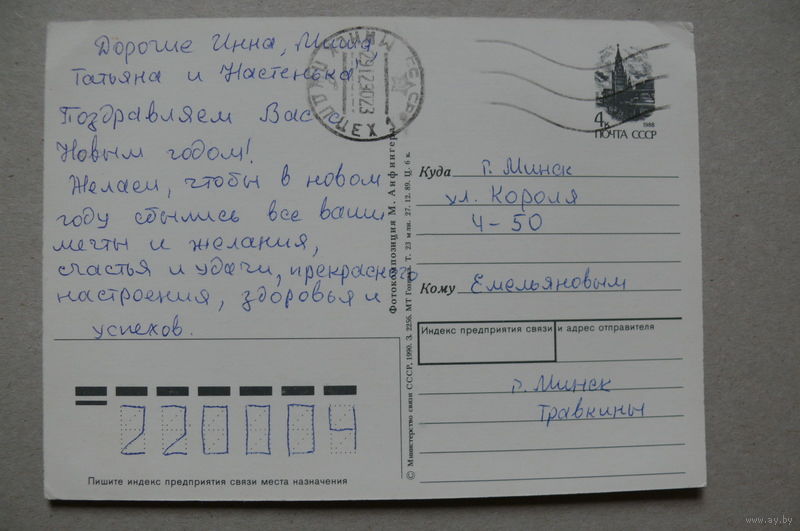 Дорогие Инна, Миша
Татьяна и Настенька
Поздравляем Вас с
Новым годом!
Желаем, чтобы в новом
году сбылись все ваши
мечты и желания,
счастья и удачи, прекрасного
настроения, здоровья и
успехов.
220004
Пишите индекс предприятия связи места назначения
Фотокомпозиция М. Анфингер
© Министерство связи СССР, 1990. З. 2256. МТ Гознака. Т. 23 млн. 27. 12. 89. Ц. 6 к.
4к
1988
ПОЧТА СССР
Куда г. Минск
ул. Короля
4-50
Кому Емельяновым
Индекс предприятия связи и адрес отправителя
г. Минск
Травкины
www.ay.by